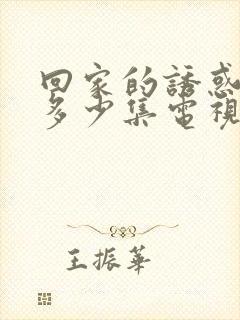 回家的誘惑
多少集電視
王振華